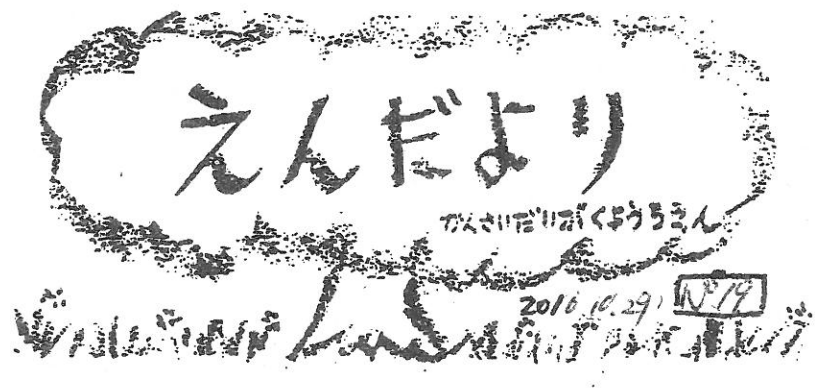 えんだより
かんさいだいがくようちえん
2016.10.29
Nº19